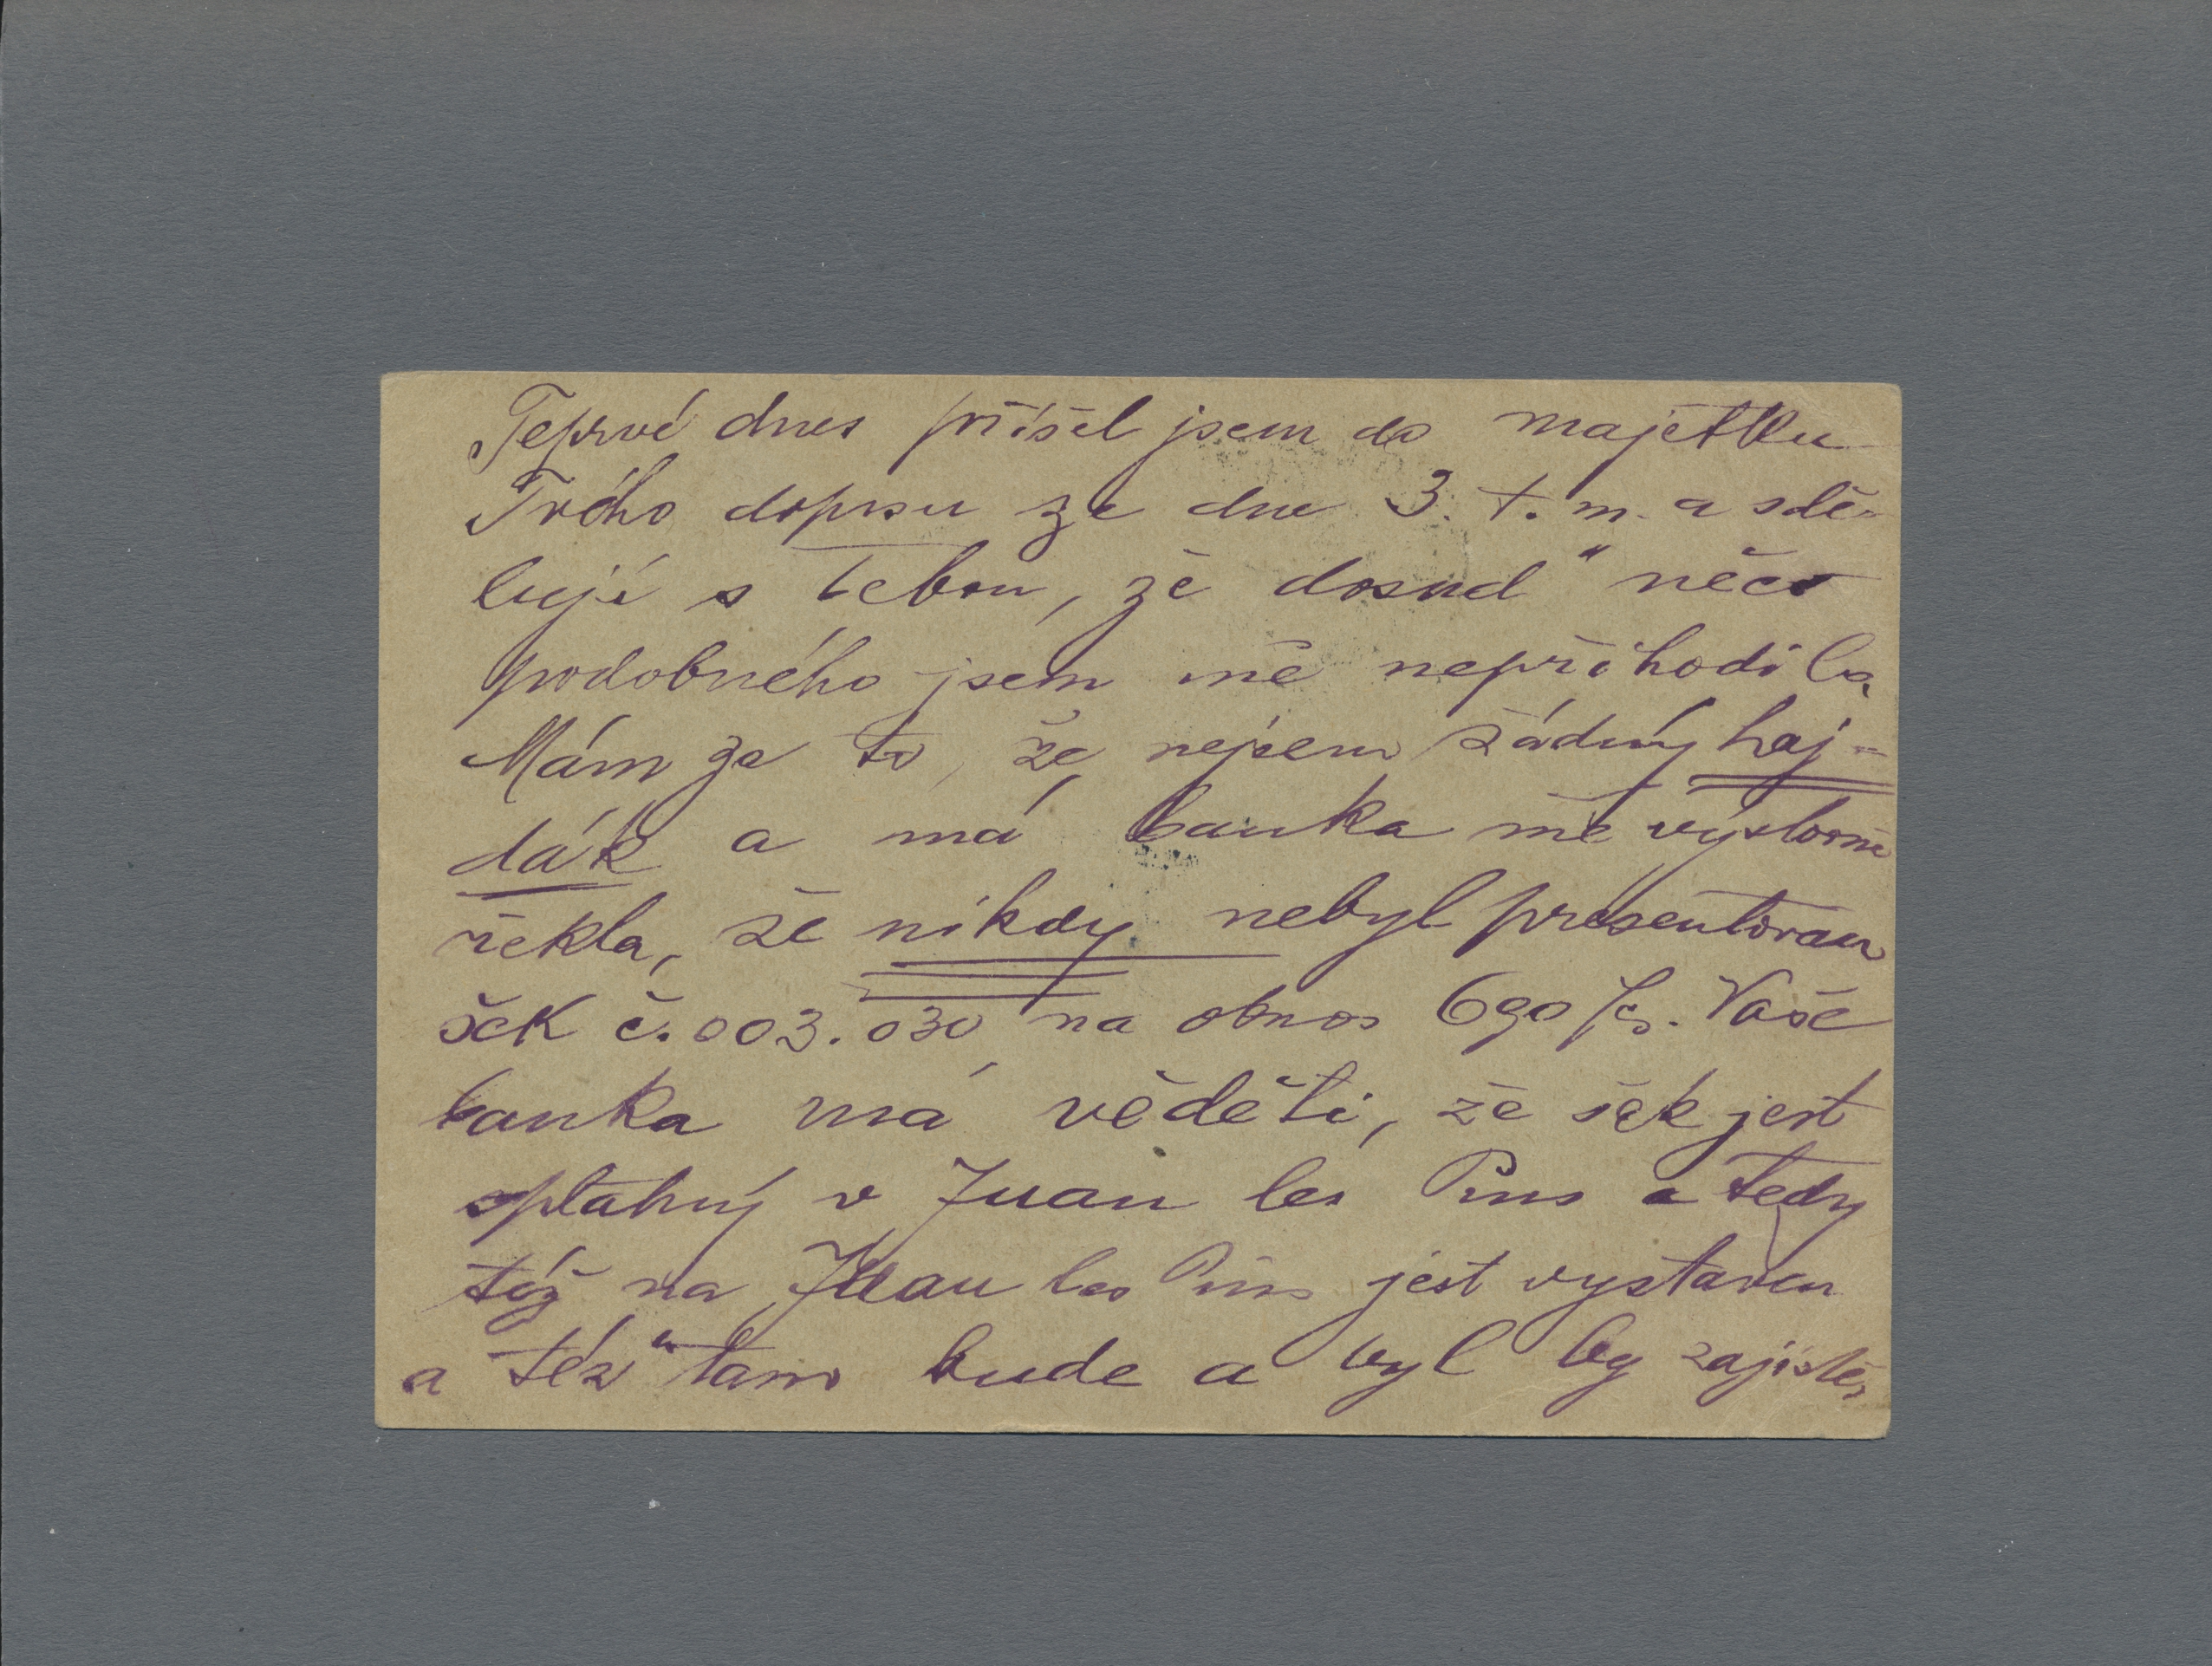 Teprvé dnes přišel jsem do majetku
Tvého dopisu ze dne 3. t. m. a sdě-
luji s Tebou, že dosud něco
podobného jsem mě nepřihodilo.
Mám za to, že nejsem žádný haj-
dák a má banka mě výslovně
řekla, že nikdy nebyl presentovan
šek č. 003.030 na obnos 690 fcs. Vaše
banka má věděti, že šek jest
splatný v Juan les Pins a tedy
též na Juan les Pins jest vystaven
a též tam bude a byl by zajisté